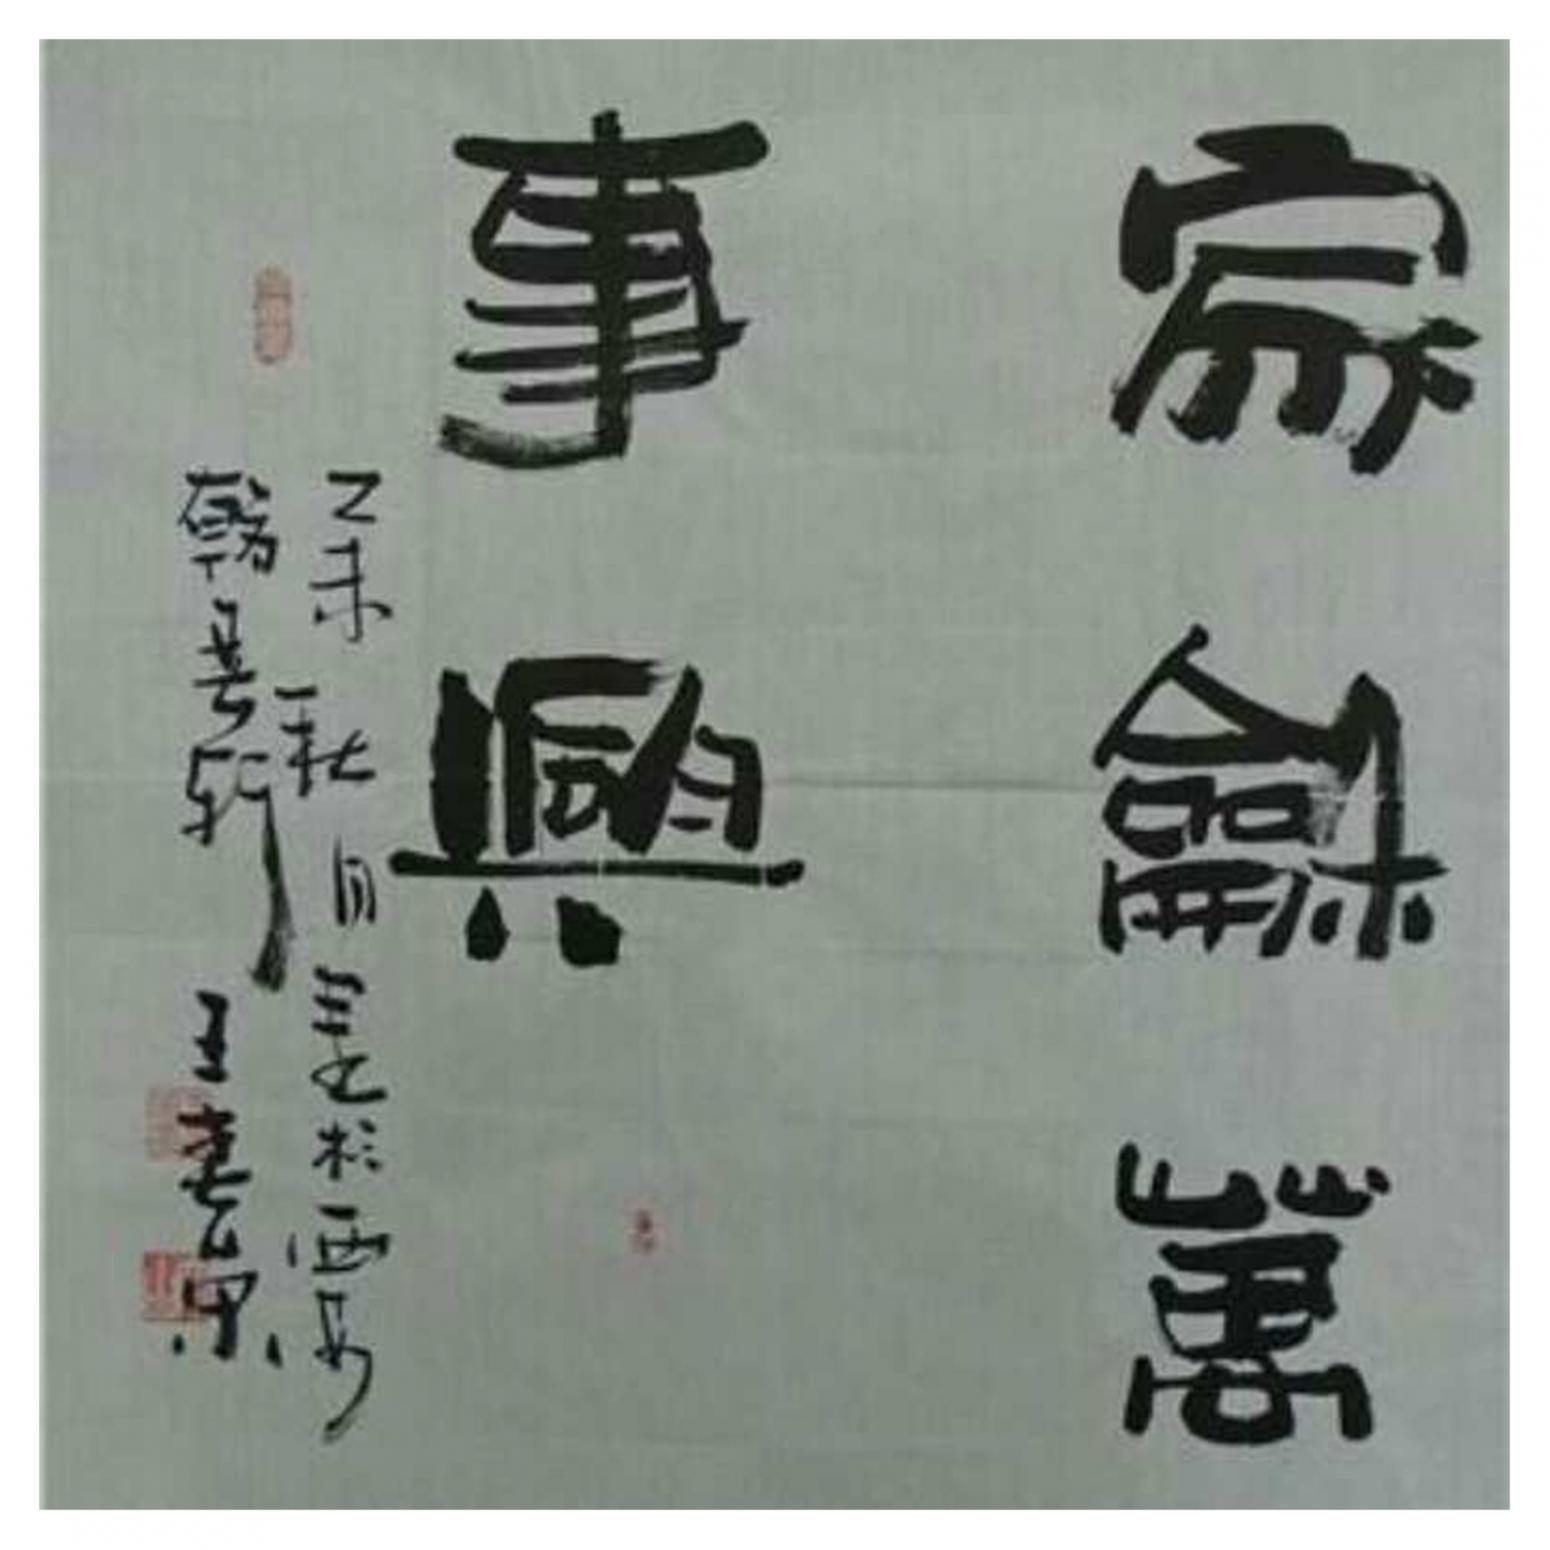 家龢萬
事興
乙未秋月書於西安
翰墨軒王